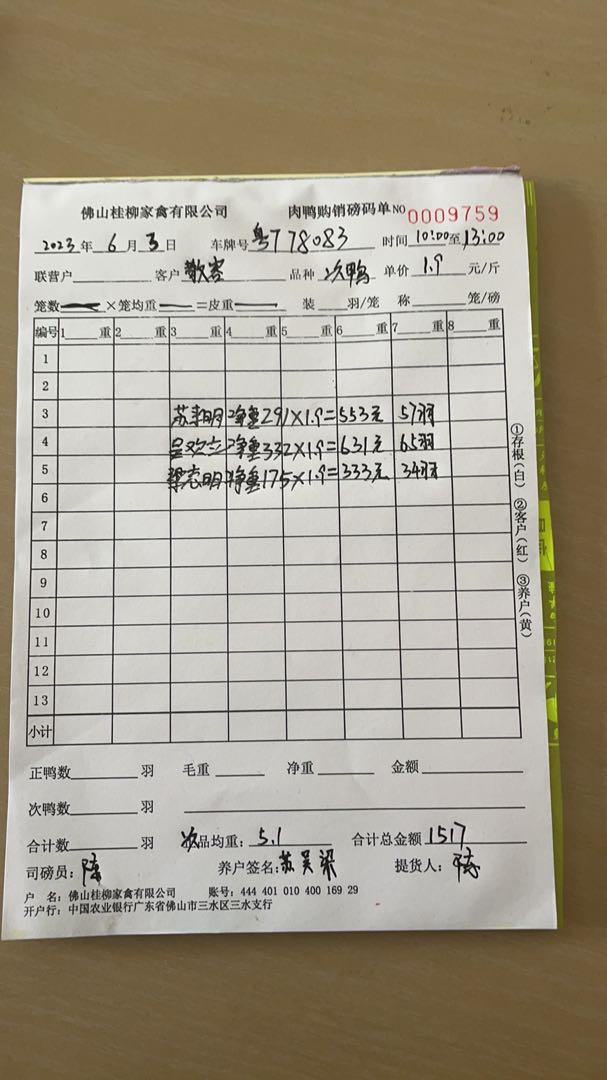 佛山桂柳家禽有限公司 肉鸭购销磅码单 NO 0009759
2023年 6月 3日 车牌号 粤T78083 时间 10:00至13:00
联营户 客户 散客 品种 次鸭 单价 1.9 元/斤
笼数 ×笼均重 =皮重 装 羽/笼 称 笼/磅
编号 1 重 2 重 3 重 4 重 5 重 6 重 7 重 8 重
1
2
3
苏李明 净重291×1.9=553元 57羽
4
吴欢立 净重332×1.9=631元 65羽
5
梁志明 净重175×1.9=333元 34羽
6
7
8
9
10
11
12
13
小计
①存根(白) ②客户(红) ③养户(黄)
正鸭数 羽 毛重 净重 金额
次鸭数 羽
合计数 羽 次品均重: 5.1 合计总金额 1517
司磅员: 养户签名: 苏 吴 梁 提货人:
户 名: 佛山桂柳家禽有限公司 账号: 444 401 010 400 169 29
开户行: 中国农业银行广东省佛山市三水区三水支行